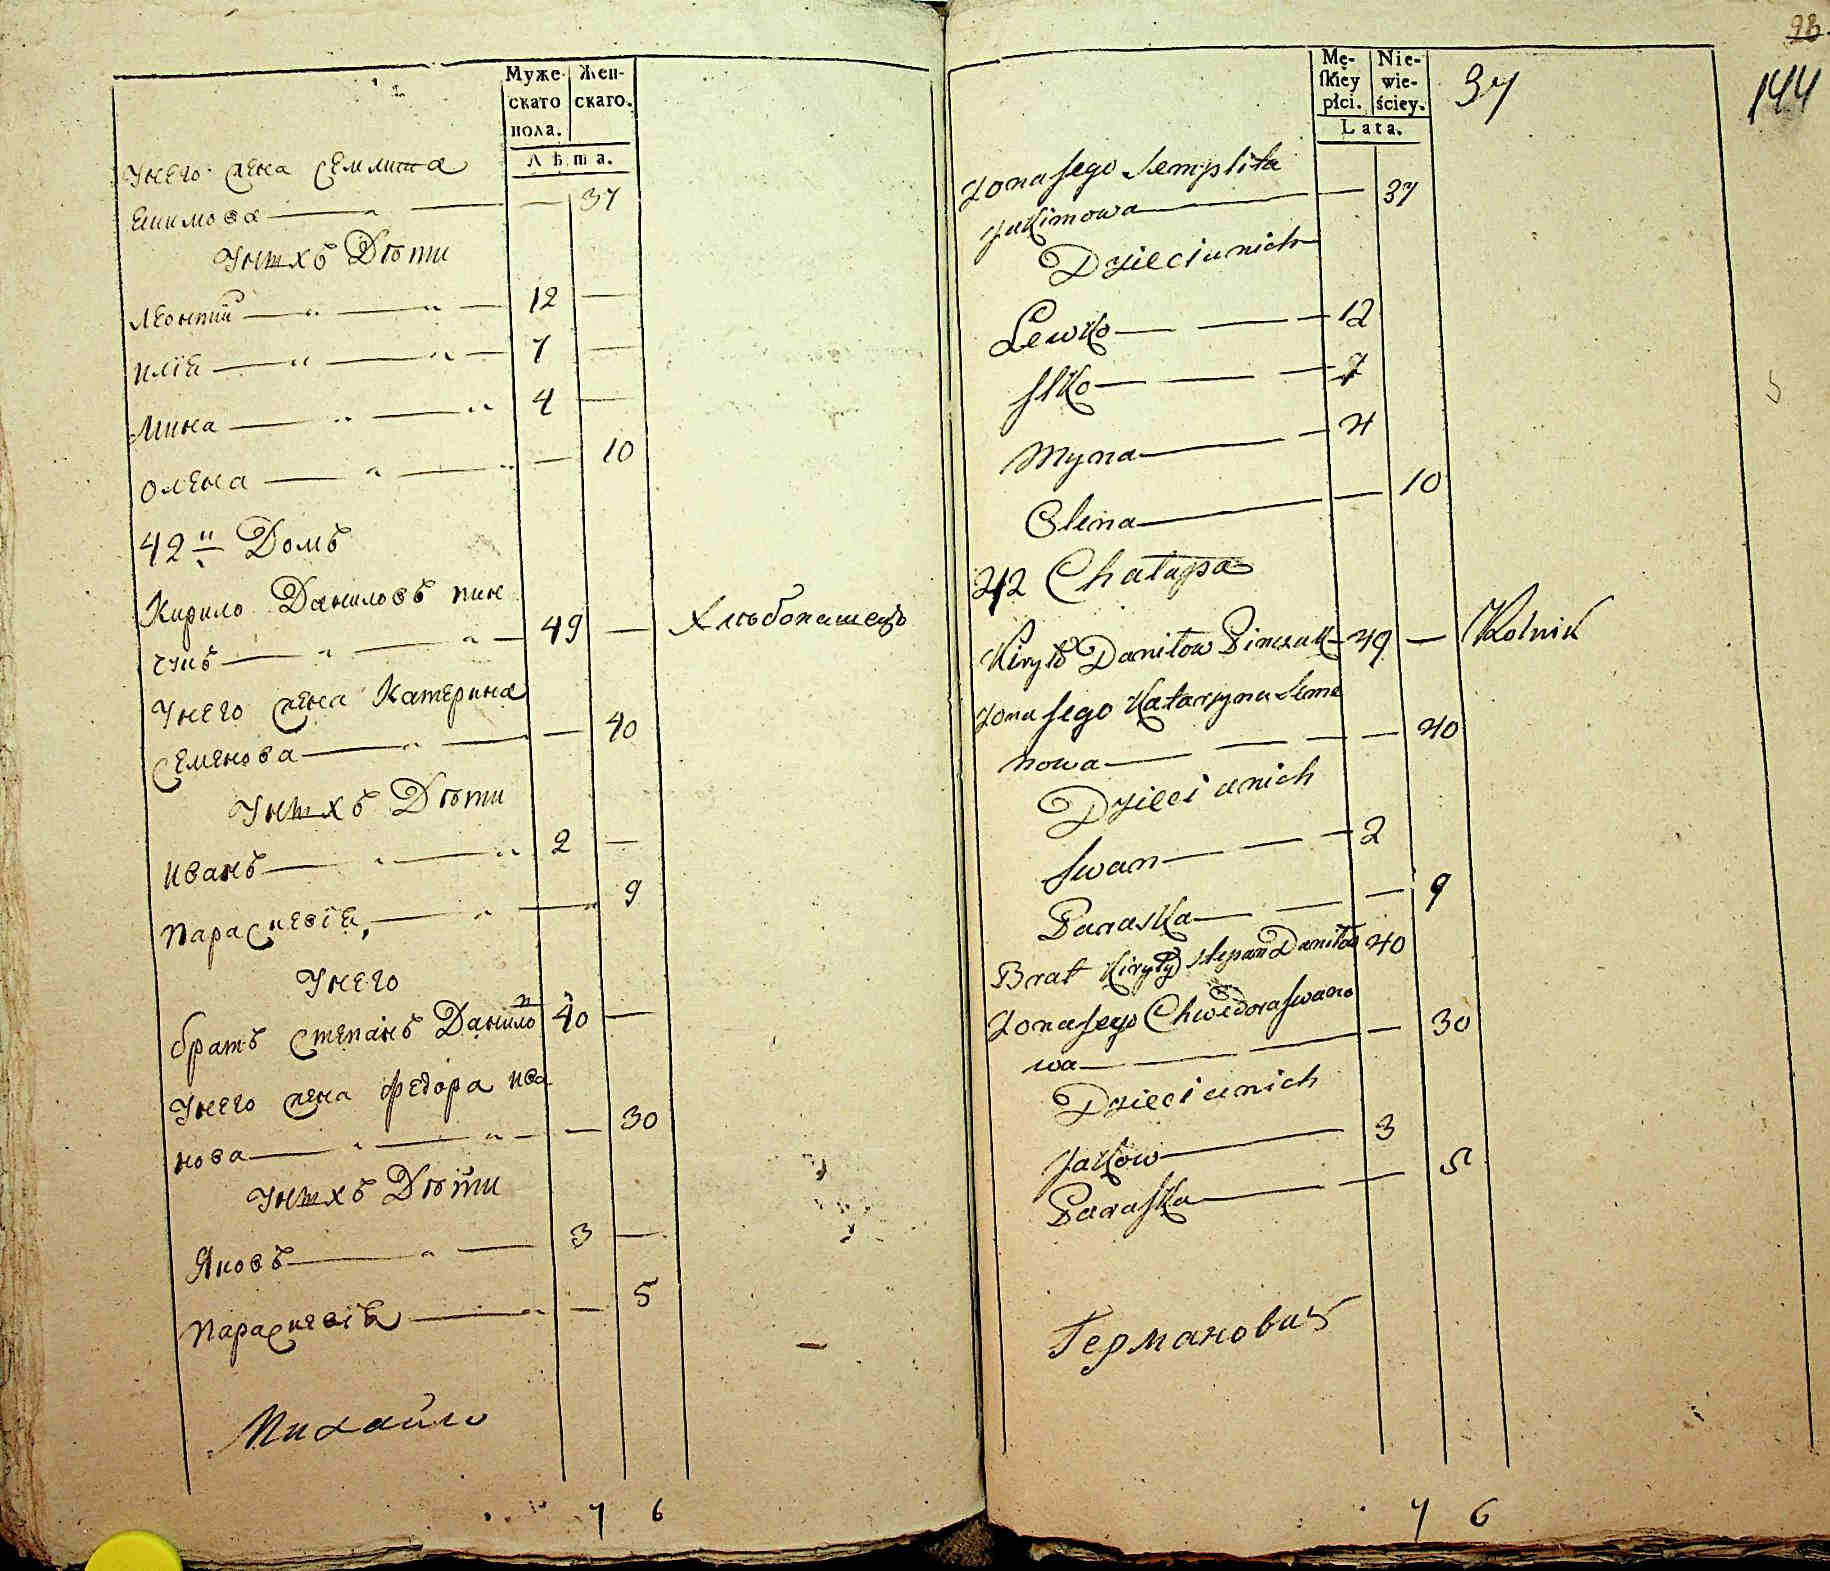 Муже- Жен-
скаго скаго.
пола.
Лѣта.
У него жена Семлита
Екимова — — — 37
У нихъ Дѣти
Леонтий — — 12 —
Илія — — 7 —
Мина — — 4 —
Олена — — — 10
42й Домъ
Кирило Даниловъ пин
чукъ — — 49 — Хлѣбопашецъ
У него жена Катерина
Семенова — — — 40
У нихъ Дѣти
Иванъ — — 2 —
Параскевія — — — 9
У него
братъ Степанъ Данило 40 —
У него жена Федора Ива
нова — — — 30
У нихъ Дѣти
Яковъ — — 3 —
Параскевія — — — 5
Михайло
7 6
98
Mę- Nie-
skiey wie-
płci. ściey.
Lata.
37
144
Żona jego Semplita
Jakimowa — — 37
Dzieci u nich
Lewko — — 12
Ilko — — 7
Myna — — 4
Olena — — 10
42 Chałupa
Kiryło Daniłow Pinczuk — 49 — Rolnik
Żona jego Katarzyna Seme
nowa — — — 40
Dzieci u nich
Iwan — — 2
Paraska — — 9
Brat Kiryły Stepan Daniłow 40
Żona jego Chwedora Iwano
wa — — 30
Dzieci u nich
Jakow — 3
Paraska — — 5
Германовичъ
7 6